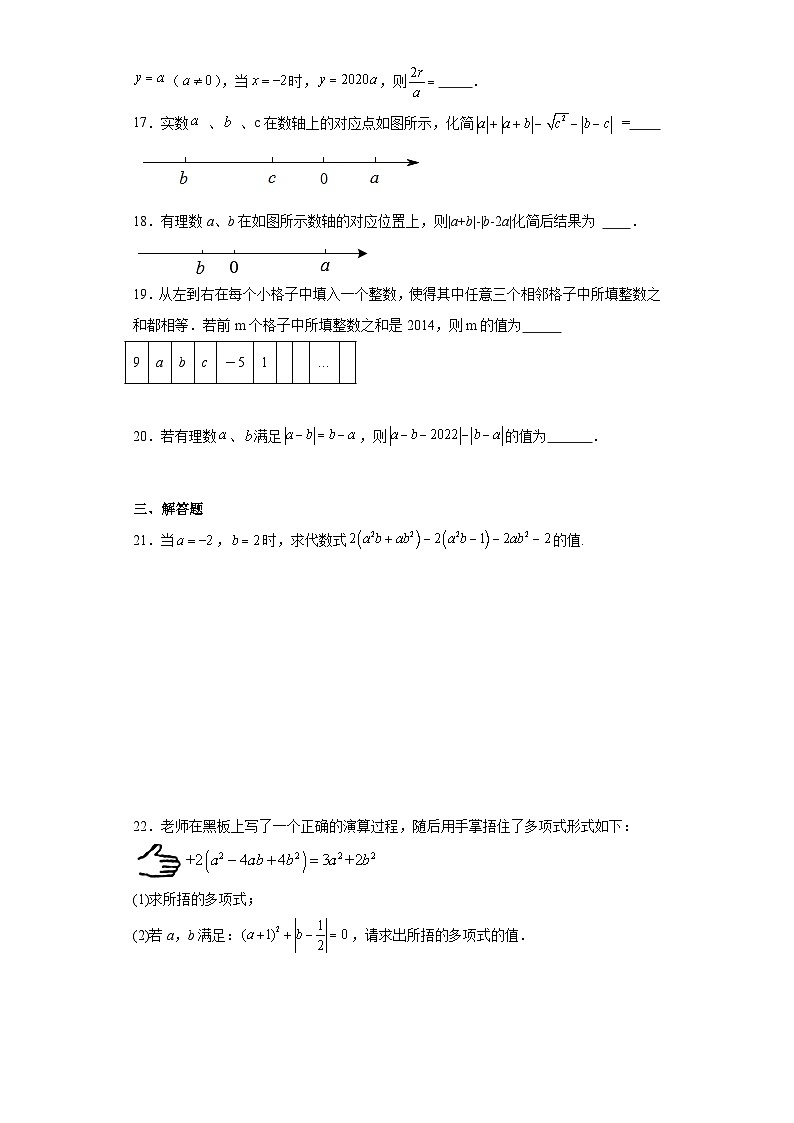 y = a（a ≠ 0），当 x = −2 时，y = 2020a，则 2r/a = ____．
17．实数 a 、b 、c 在数轴上的对应点如图所示，化简 |a| + |a + b| − √c² − |b − c| =____
b c 0 a
18．有理数 a、b 在如图所示数轴的对应位置上，则|a+b|-|b-2a|化简后结果为 ____．
b 0 a
19．从左到右在每个小格子中填入一个整数，使得其中任意三个相邻格子中所填整数之
和都相等．若前 m 个格子中所填整数之和是 2014，则 m 的值为_____
9 a b c －5 1 …
20．若有理数 a 、b 满足 |a − b| = b − a ，则 |a − b − 2022| − |b − a| 的值为______．
三、解答题
21．当 a = −2 ，b = 2 时，求代数式 2(a²b + ab²) − 2(a²b − 1) − 2ab² − 2 的值.
22．老师在黑板上写了一个正确的演算过程，随后用手掌捂住了多项式形式如下：
+2(a² − 4ab + 4b²) = 3a² + 2b²
(1)求所捂的多项式；
(2)若 a，b 满足：(a + 1)² + |b − 1/2| = 0 ，请求出所捂的多项式的值．